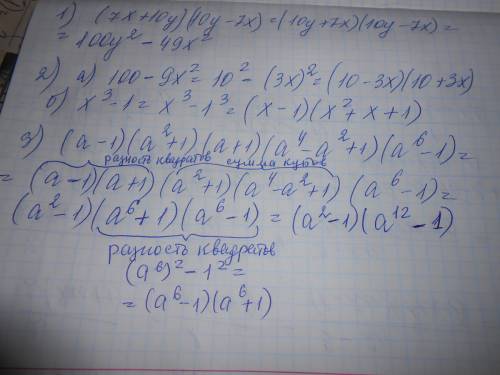 1) (7x+10y)(10y-7x)=(10y+7x)(10y-7x)=
=100y²-49x²
2) а) 100-9x²=10²-(3x)²=(10-3x)(10+3x)
б) x³-1=x³-1³=(x-1)(x²+x+1)
3) (a-1)(a²+1)(a+1)(a⁴-a²+1)(a⁶-1)=
разность квадратов сумма кубов
=(a-1)(a+1)(a²+1)(a⁴-a²+1)(a⁶-1)=
(a²-1)(a⁶+1)(a⁶-1)=(a²-1)(a¹²-1)
разность квадратов
(a⁶)²-1²=
=(a⁶-1)(a⁶+1)